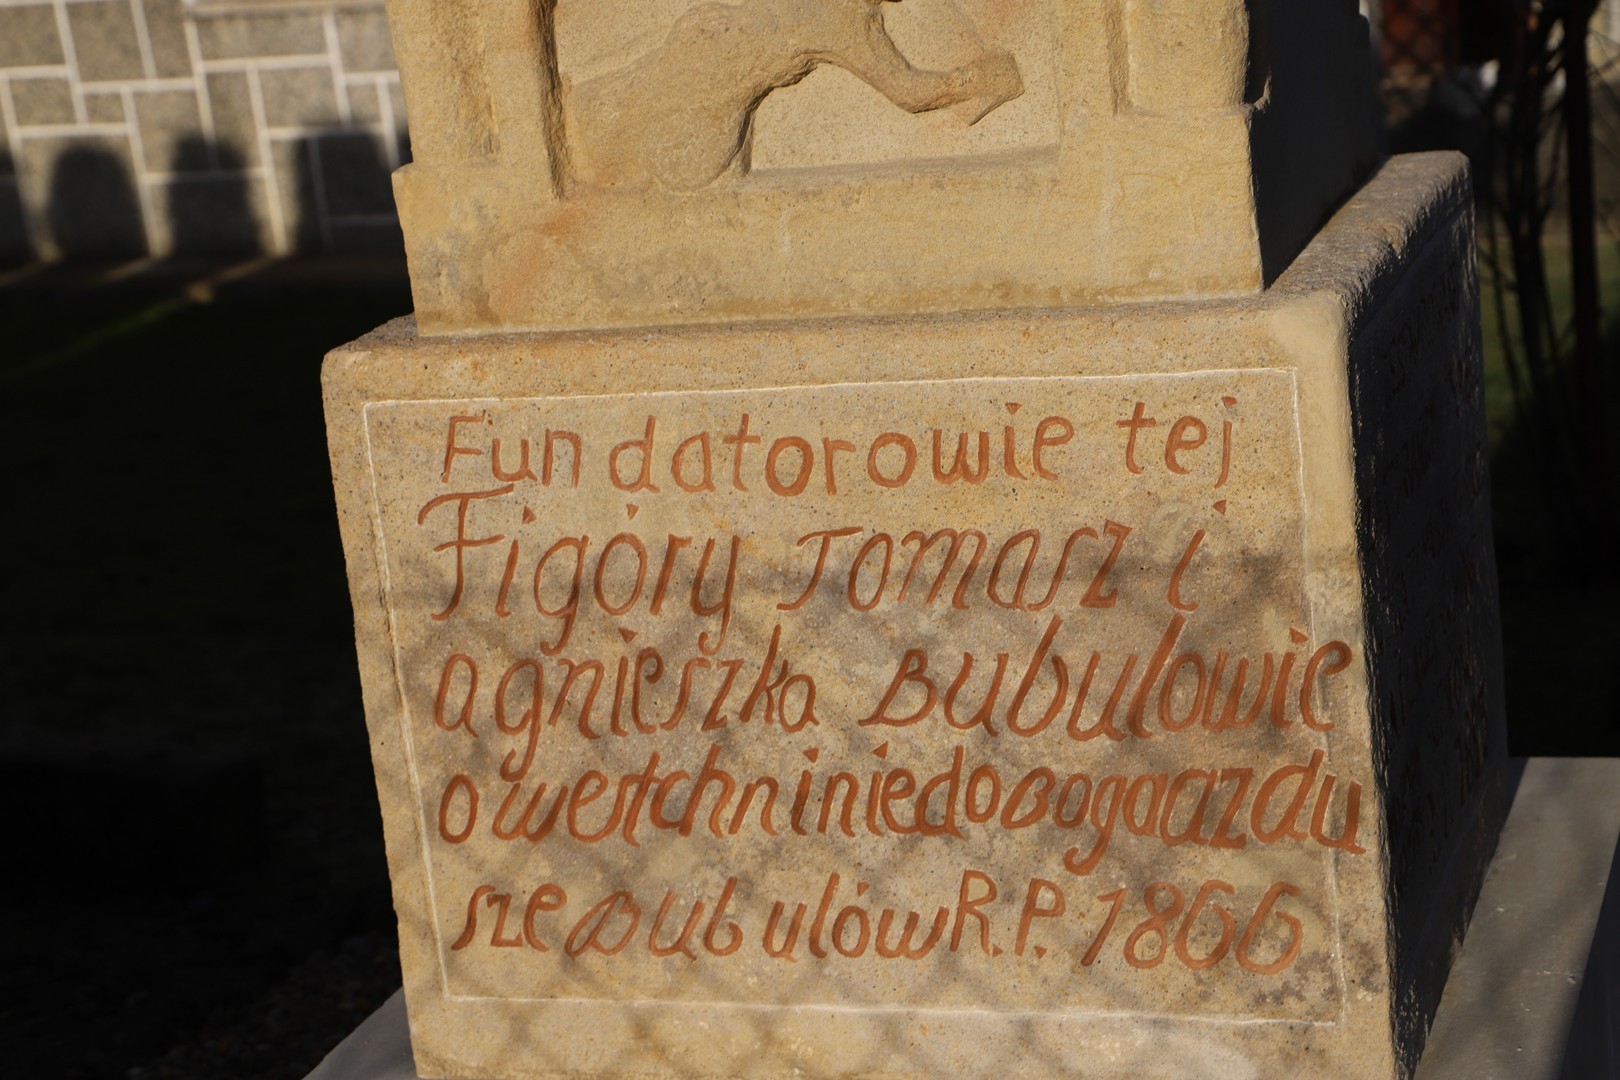 Fundatorowie tej
Figóry Tomasz i
agnieszka Bubulowie
owestchniniedoBogaazdu
szeBubulówR.P. 1866